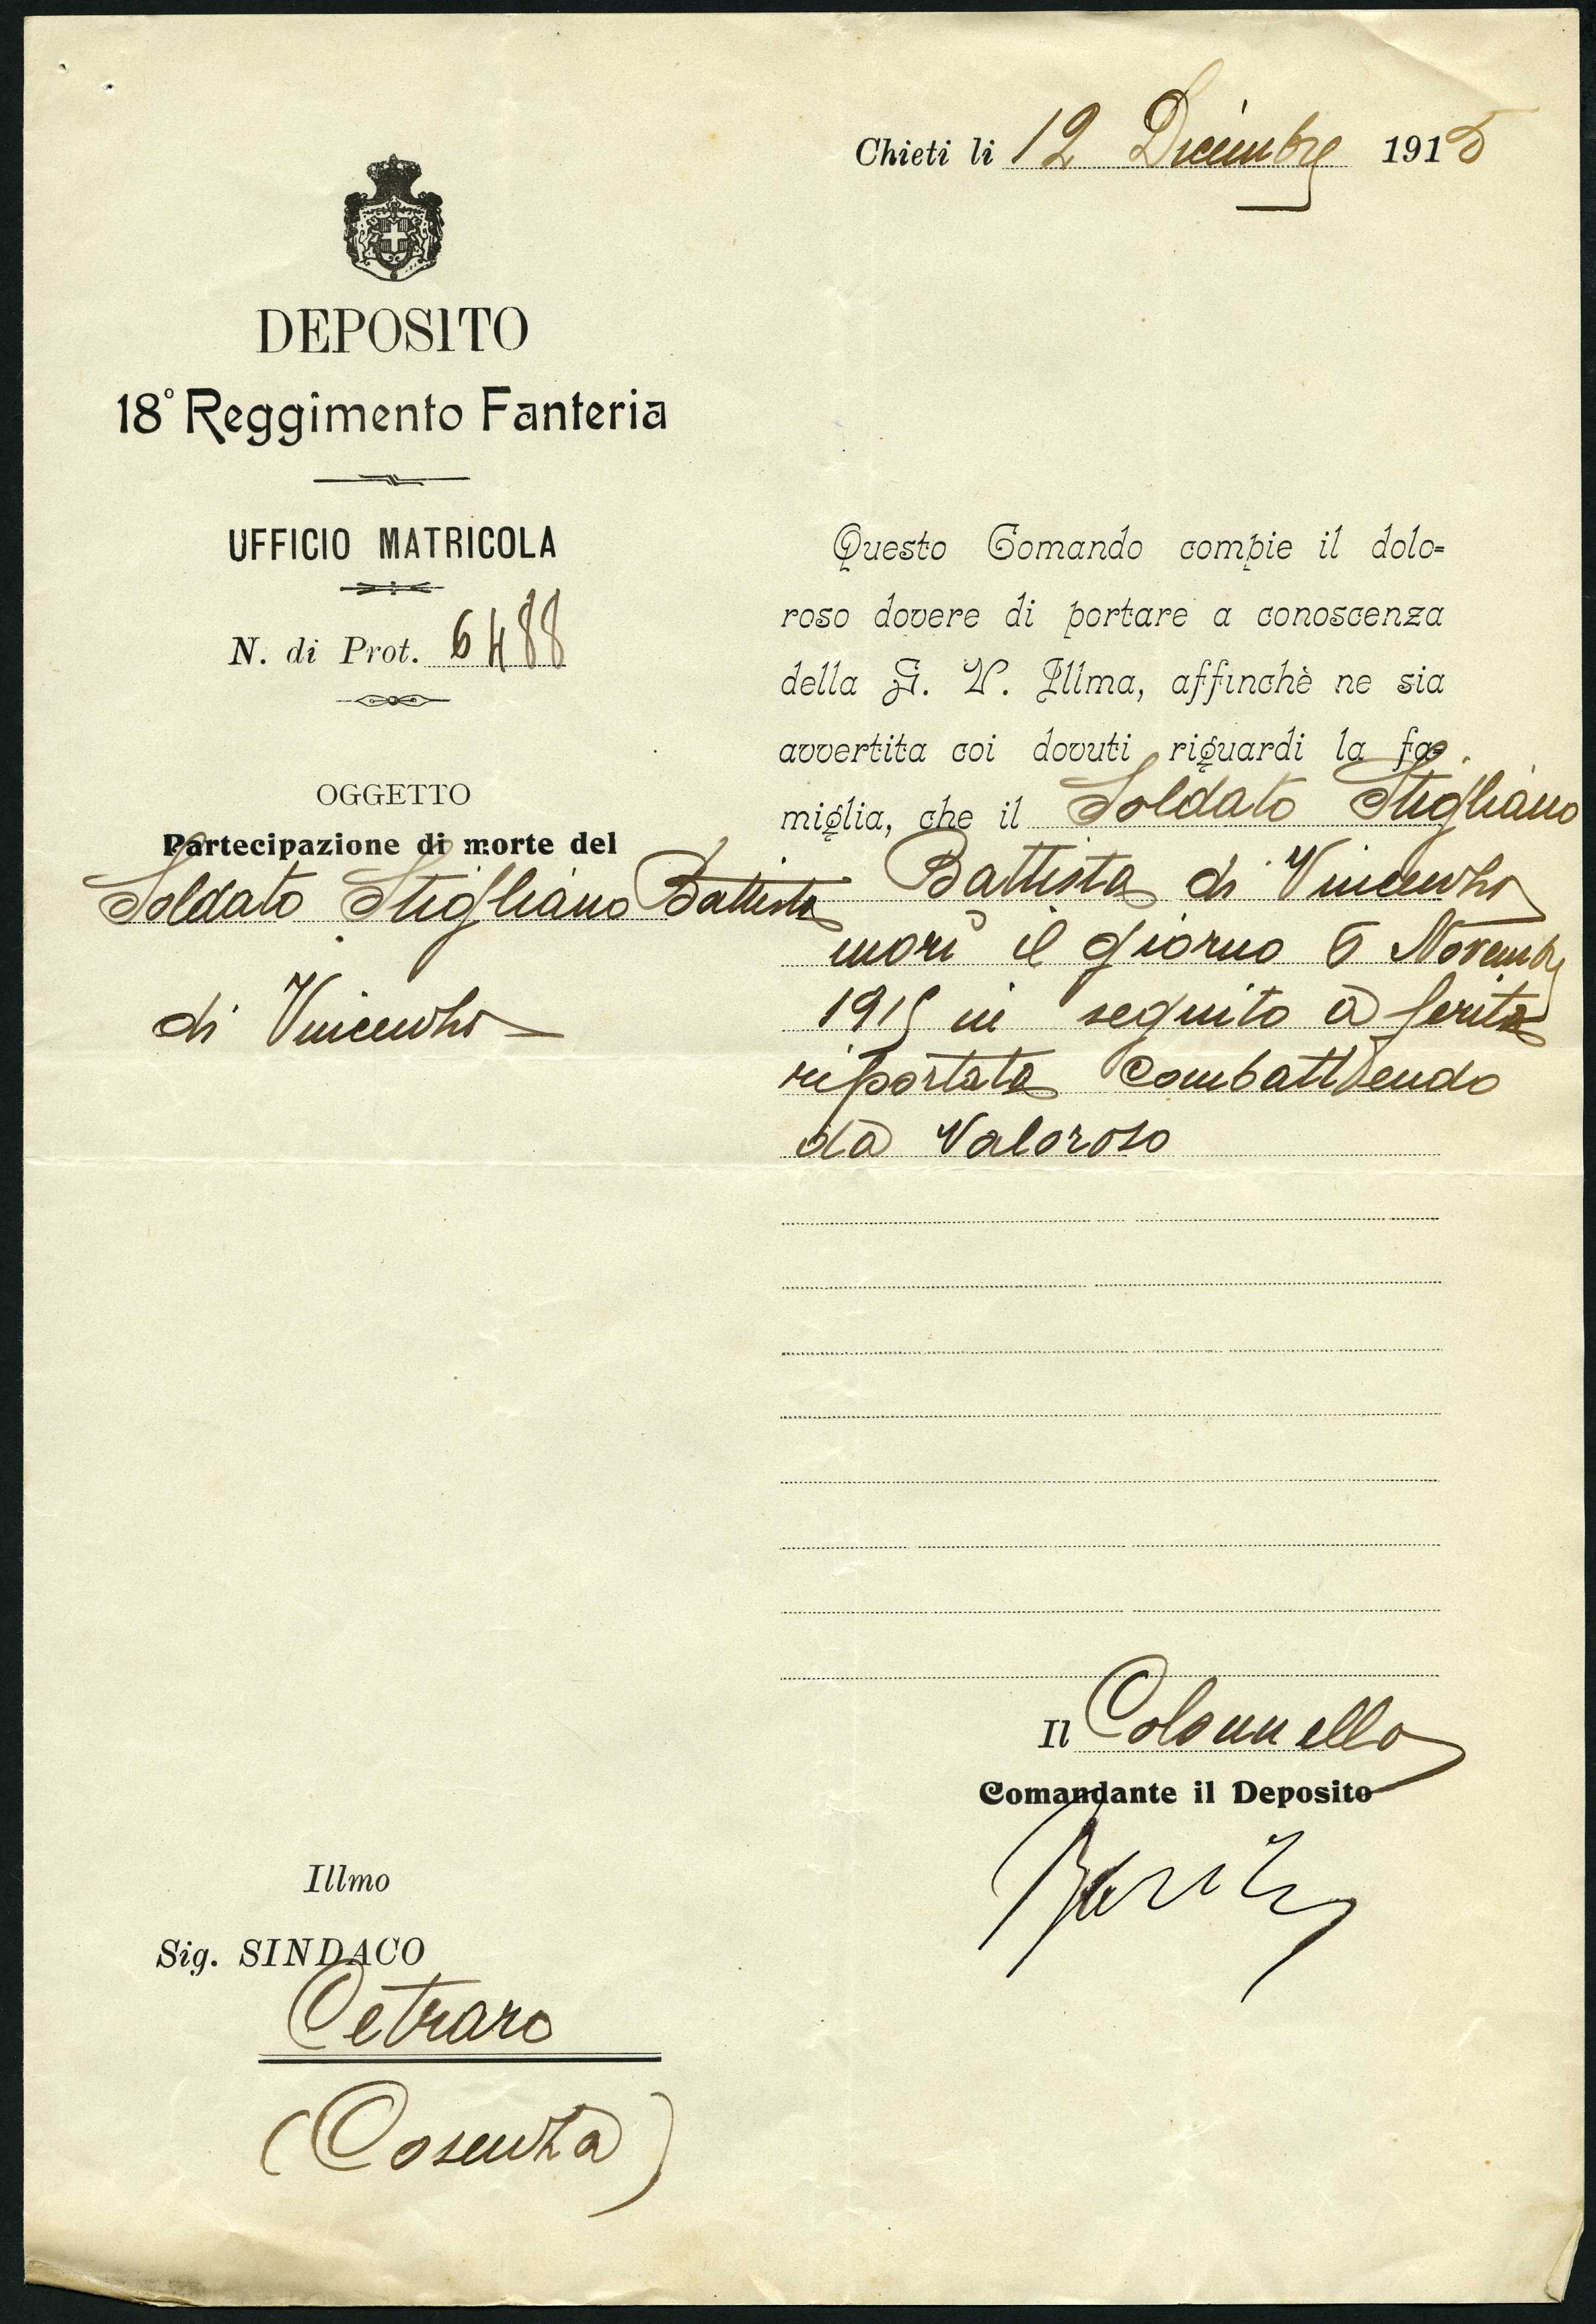 Chieti li 12 Dicembre 1915
DEPOSITO
18° Reggimento Fanteria
UFFICIO MATRICOLA
N. di Prot. 6488
OGGETTO
Partecipazione di morte del
Soldato Stigliano Battista
di Vincenzo
Questo Comando compie il dolo=
roso dovere di portare a conoscenza
della S. V. Illma, affinchè ne sia
avvertita coi dovuti riguardi la fa=
miglia, che il Soldato Stigliano
Battista di Vincenzo
morì il giorno 5 Novembre
1915 in seguito a ferita
riportata combattendo
da Valoroso
Il Colonnello
Comandante il Deposito
Illmo
Sig. SINDACO
Cetraro
(Cosenza)